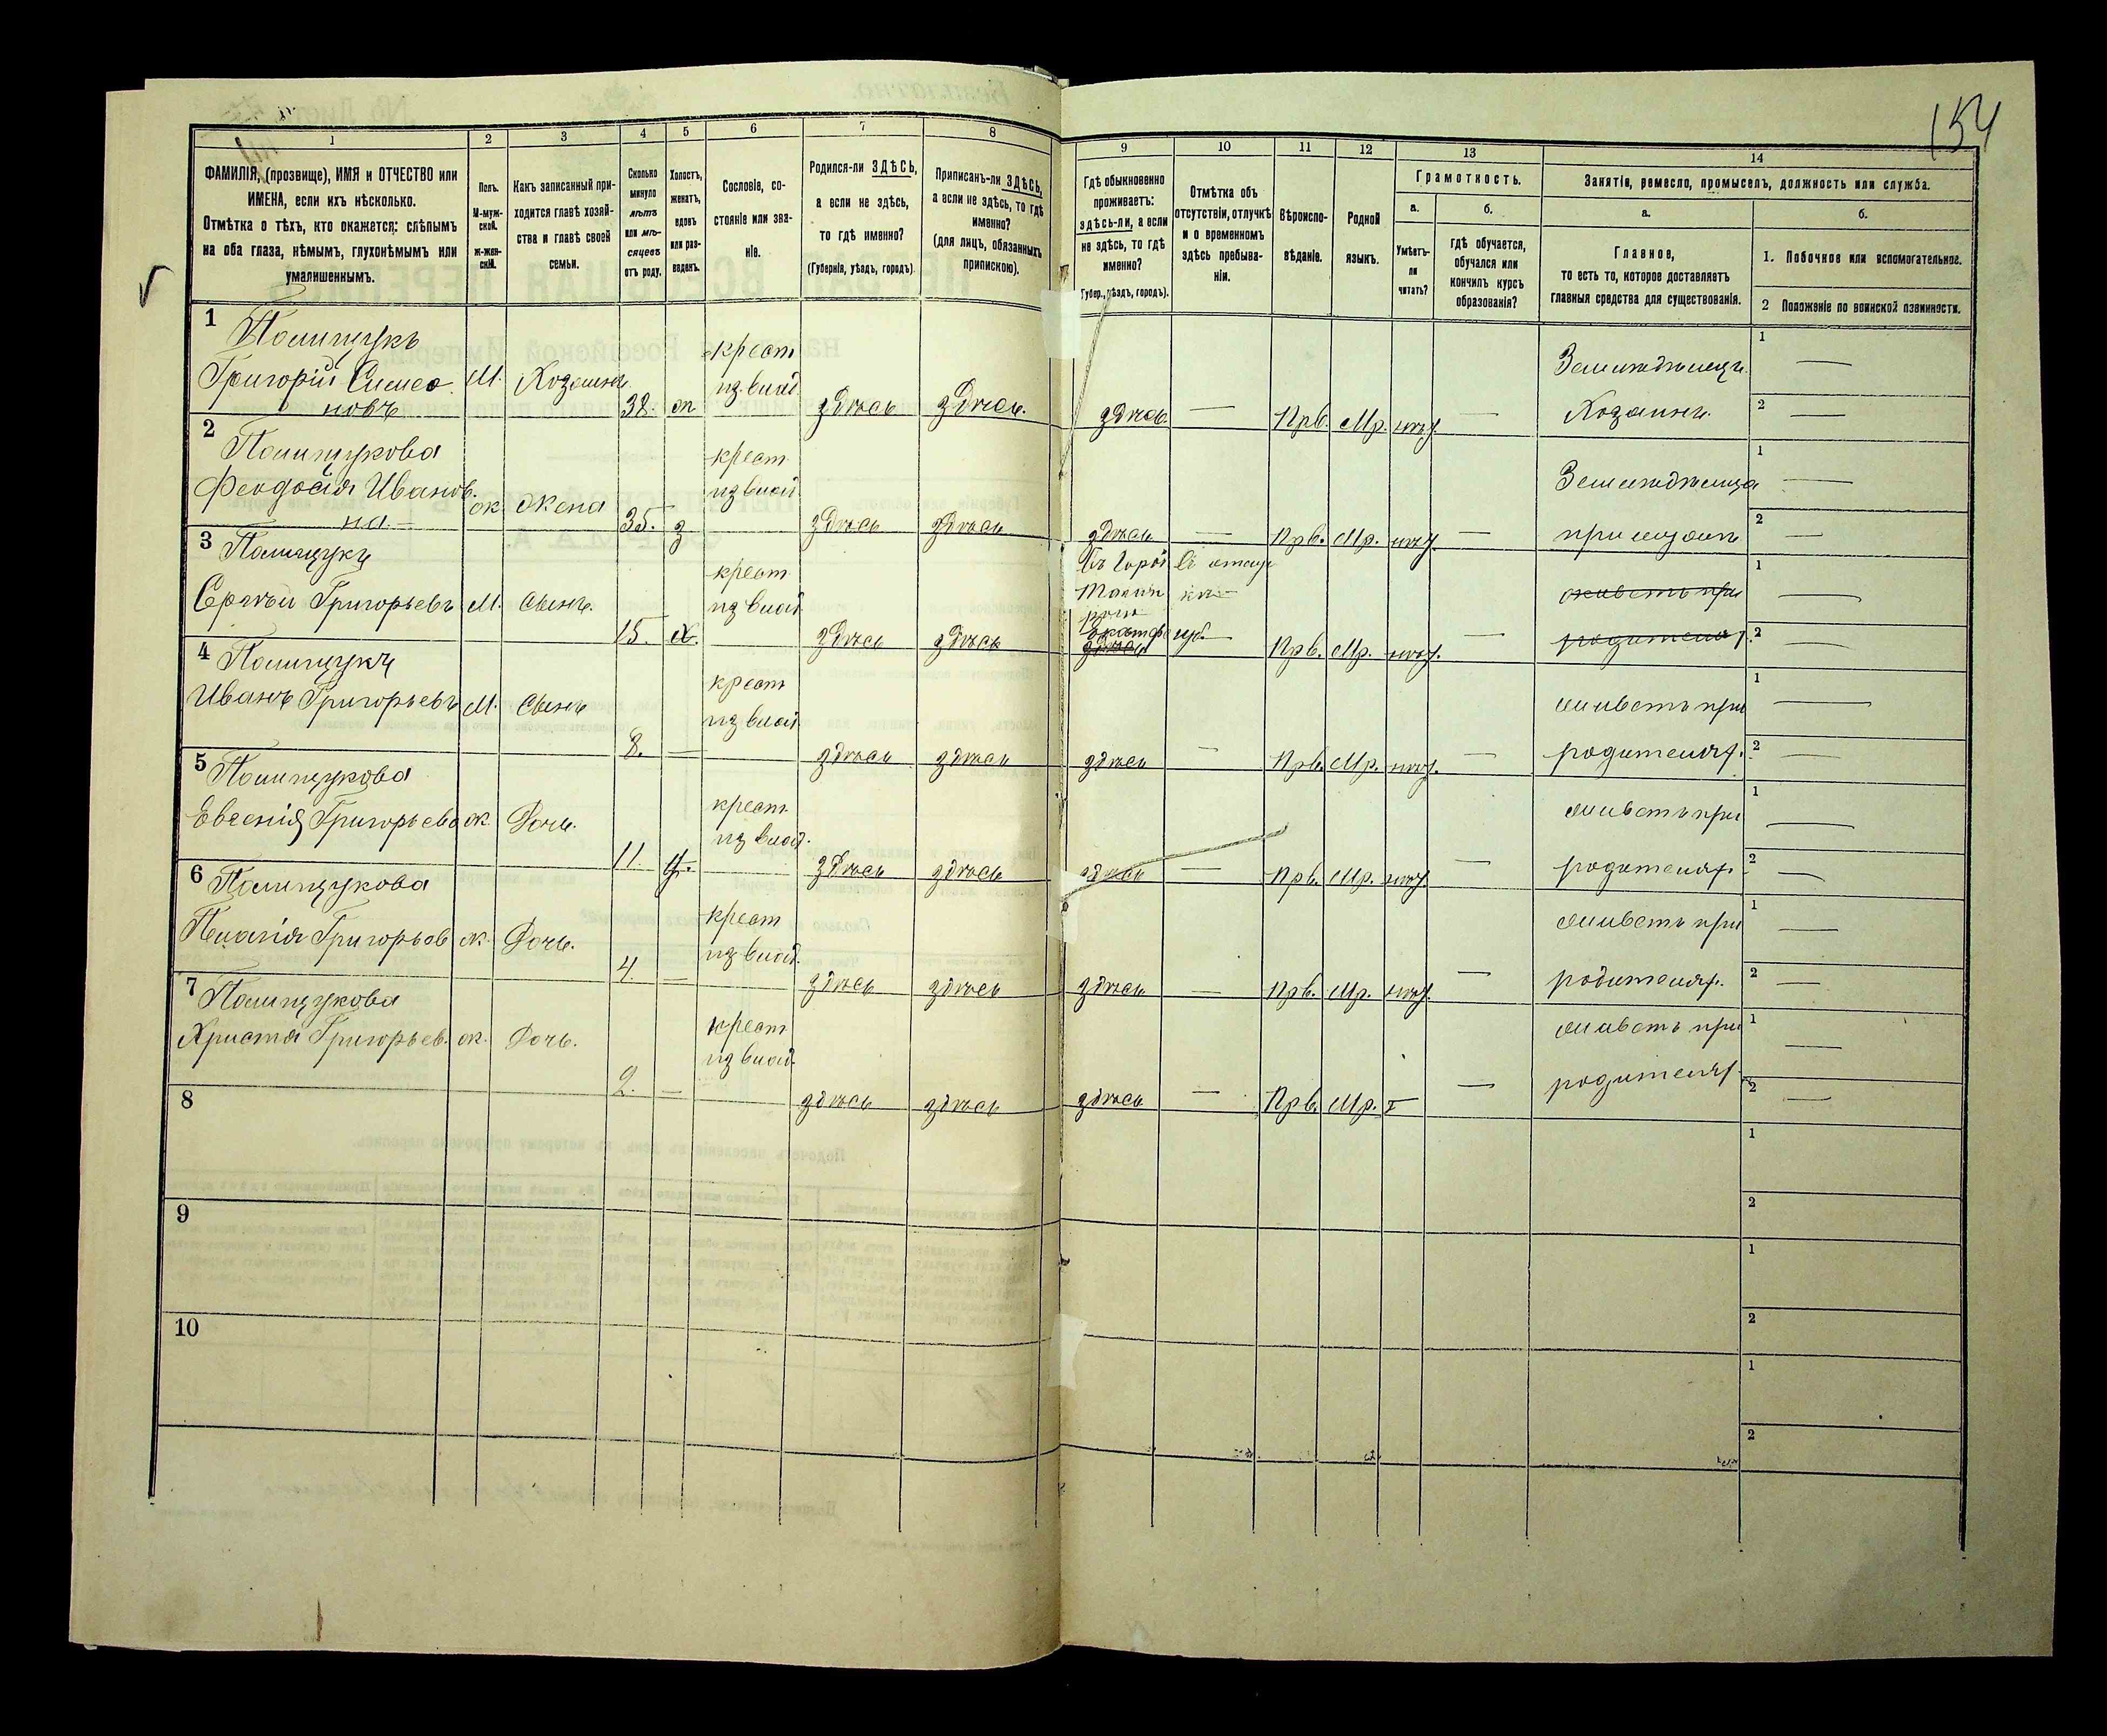 154
1 2 3 4 5 6 7 8 9 10 11 12 13 14
ФАМИЛІЯ, (прозвище), ИМЯ и ОТЧЕСТВО или
ИМЕНА, если ихъ нѣсколько.
Отмѣтка о тѣхъ, кто окажется: слѣпымъ
на оба глаза, нѣмымъ, глухонѣмымъ или
умалишеннымъ.
Полъ.
М-муж-
ской.
ж-жен-
скій.
Какъ записанный при-
ходится главѣ хозяй-
ства и главѣ своей
семьи.
Сколько
минуло
лѣтъ
или мѣ-
сяцевъ
отъ роду.
Холостъ,
женатъ,
вдовъ
или раз-
веденъ.
Сословіе, со-
стояніе или зва-
ніе.
Родился-ли ЗДѢСЬ,
а если не здѣсь,
то гдѣ именно?
(Губернія, уѣздъ, городъ).
Приписанъ-ли ЗДѢСЬ,
а если не здѣсь, то гдѣ
именно?
(для лицъ, обязанныхъ
припискою).
Гдѣ обыкновенно
проживаетъ:
здѣсь-ли, а если
не здѣсь, то гдѣ
именно?
(Губер., уѣздъ, городъ).
Отмѣтка объ
отсутствіи, отлучкѣ
и о временномъ
здѣсь пребыва-
ніи.
Вѣроиспо-
вѣданіе.
Родной
языкъ.
Грамотность.
а.
Умѣетъ-
ли
читать?
б.
Гдѣ обучается,
обучался или
кончилъ курсъ
образованія?
Занятіе, ремесло, промыселъ, должность или служба.
а.
Главное,
то есть то, которое доставляетъ
главныя средства для существованія.
б.
1. Побочное или вспомогательное.
2 Положеніе по воинской повинности.
1 Полищукъ
Григорій Симео
новъ
М. Хозяинъ 38. ж крест
из влад. здѣсь здѣсь. здѣсь. — Прв. Мр. нѣт. — Земледѣлецъ
Хозяинъ. 1 — 2 —
2 Полищукова
Феодосія Иванов.
на. —
ж жена 35. з крест
из влад. здѣсь здѣсь здѣсь — Прв. Мр. нѣт. — Земледѣлица
при мужѣ 1 — 2 —
3 Полищукъ
Сергѣй Григорьевъ М. Сынъ. 15. Х. крест
из влад. здѣсь здѣсь здѣсь Въ отлуч
кѣ — Прв. Мр. нѣт. — живетъ при
родителях. 1 — 2 —
4 Полищукъ
Иванъ Григорьевъ М. Сынъ 8. — крест
из влад. здѣсь здѣсь здѣсь — Прв. Мр. нѣт. — живетъ при
родителях. 1 — 2 —
5 Полищукова
Евгенія Григорьева ж. Дочь. 11. крест
из влад. здѣсь здѣсь здѣсь — Прв. Мр. нѣт. — живетъ при
родителях. 1 — 2 —
6 Полищукова
Пелагія Григорьев ж. Дочь. 4. — крест
из влад. здѣсь здѣсь здѣсь — Прв. Мр. нѣт. — живетъ при
родителях. 1 — 2 —
7 Полищукова
Христя Григорьев. ж. Дочь. 2. — крест
из влад. здѣсь здѣсь здѣсь — Прв. Мр. — живетъ при
родителях. 1 — 2 —
8 1 2
9 1 2
10 1 2